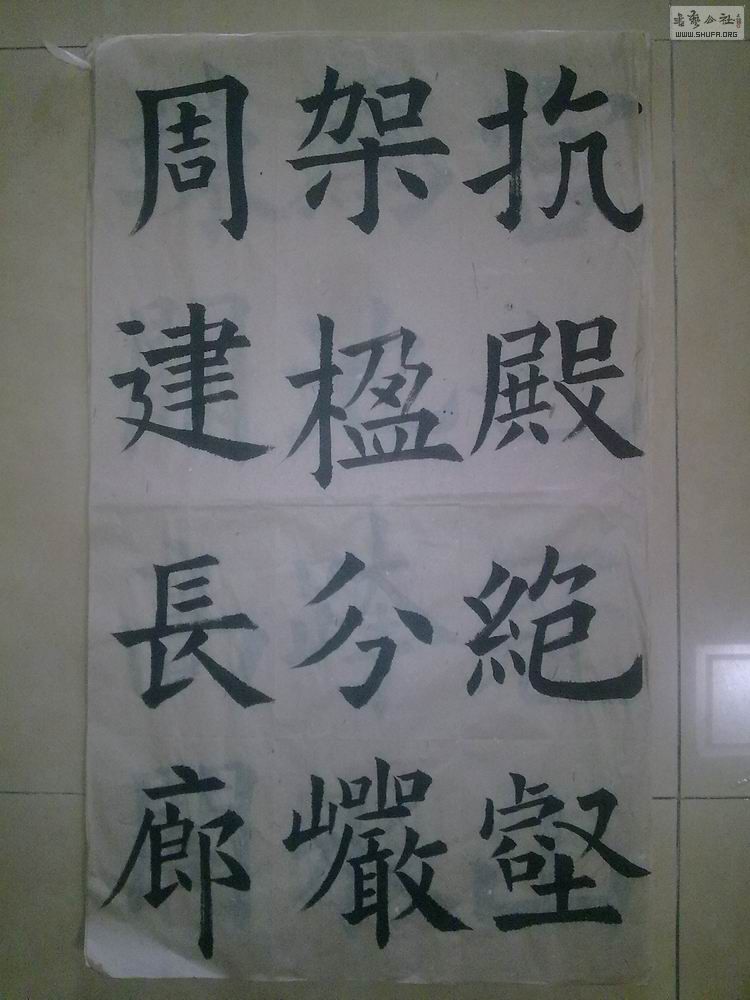 抗殿絕壑
架楹分巗
周建長廊
書藝公社
WWW.SHUFA.ORG